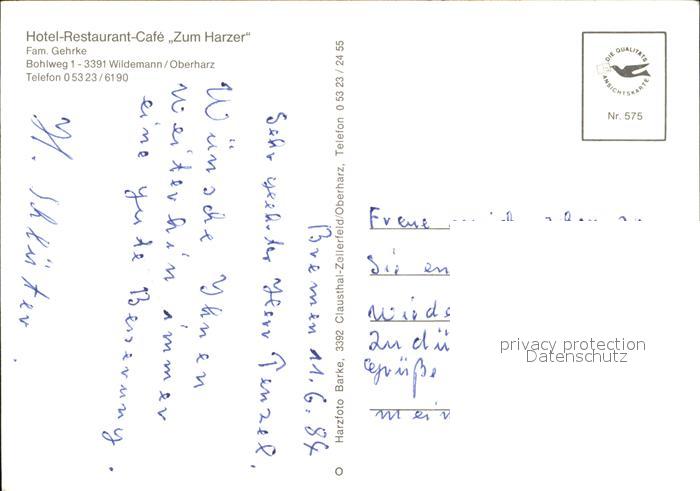 Hotel-Restaurant-Café „Zum Harzer“
Fam. Gehrke
Bohlweg 1 - 3391 Wildemann/Oberharz
Telefon 0 53 23 / 6190
DIE QUALITÄTS
ANSICHTSKARTE
Nr. 575
Harzfoto Barke, 3392 Clausthal-Zellerfeld/Oberharz, Telefon 0 53 23 / 24 55
Bremen 11.6.84
Sehr geehrter Herr Tenzel,
Wünsche Ihnen
weiterhin immer
eine gute Besserung.
H. Schlüter.
Freue
Sie
Wiede
Zu dü
Grüße
mein
privacy protection
Datenschutz